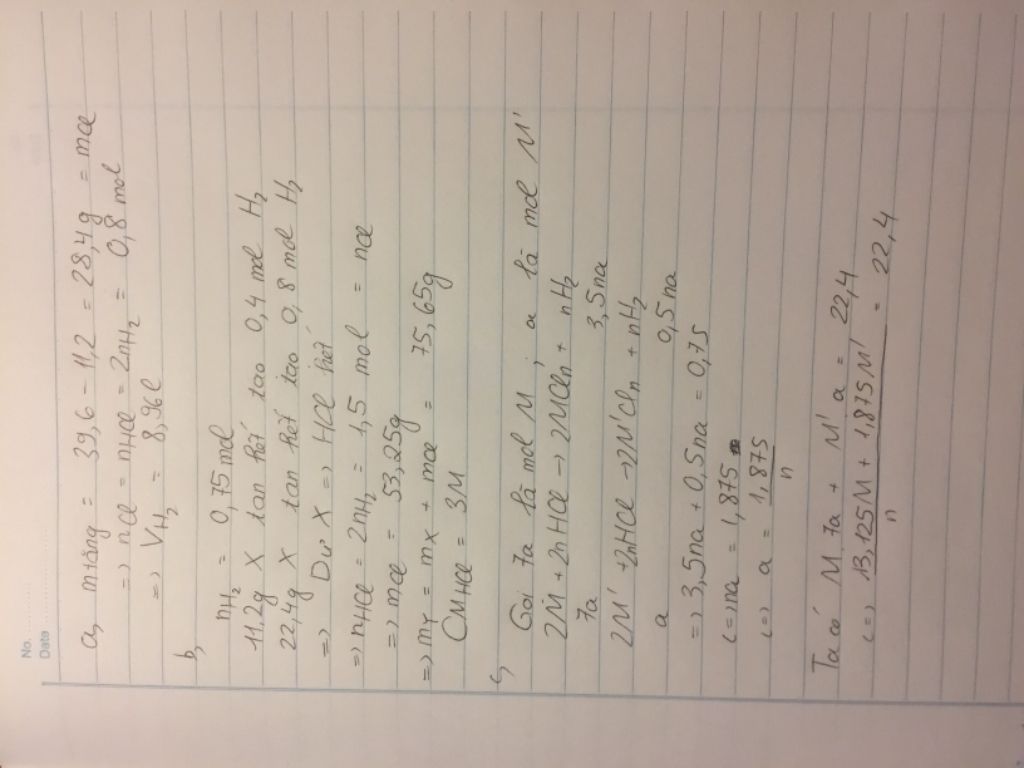 No. ............
Date ............
a, mtăng = 39,6 - 11,2 = 28,4g = mCl
=> nCl = nHCl = 2nH2 = 0,8 mol
=> VH2 = 8,96l
b,
nH2 = 0,75 mol
11,2g X tan hết tạo 0,4 mol H2
22,4g X tan hết tạo 0,8 mol H2
=> Dư X => HCl hết
=> nHCl = 2nH2 = 1,5 mol = nCl
=> mCl = 53,25g
=> mY = mX + mCl = 75,65g
CM HCl = 3M
c, Gọi 7a là mol M, a là mol M'
2M + 2nHCl -> 2MCln + nH2
7a 3,5na
2M' + 2nHCl -> 2M'Cln + nH2
a 0,5na
=> 3,5na + 0,5na = 0,75
<=> na = 1,875
<=> a = 1,875/n
Ta có M.7a + M'a = 22,4
<=> 13,125M + 1,875M'/n = 22,4